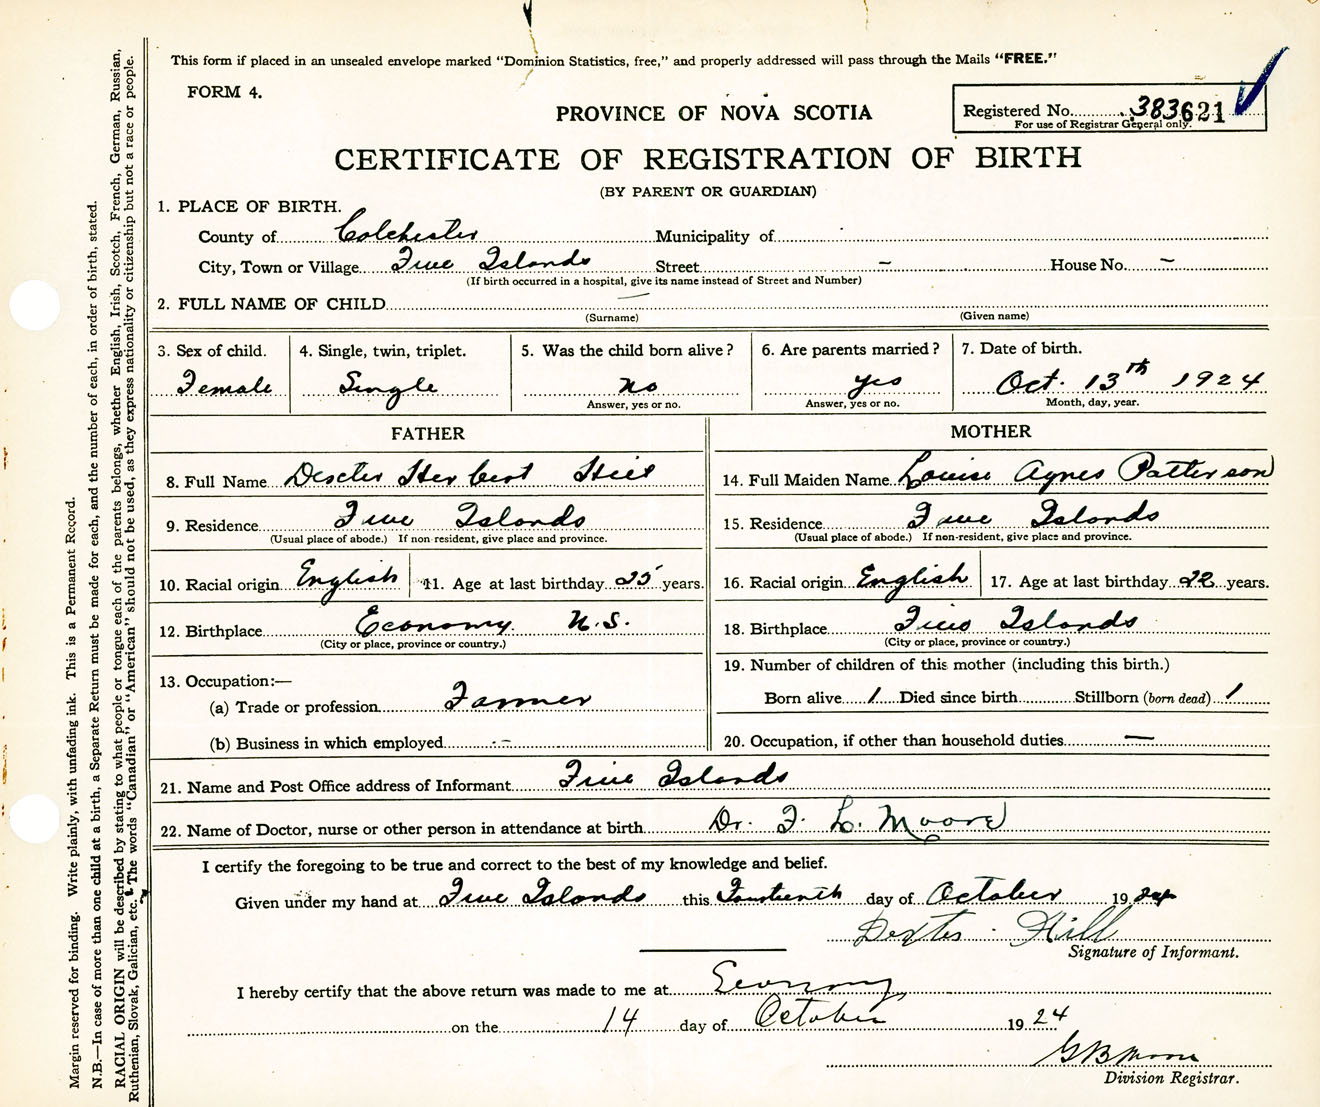 This form if placed in an unsealed envelope marked "Dominion Statistics, free," and properly addressed will pass through the Mails "FREE."
FORM 4.
PROVINCE OF NOVA SCOTIA
Registered No. 383621
For use of Registrar General only.
CERTIFICATE OF REGISTRATION OF BIRTH
(BY PARENT OR GUARDIAN)
1. PLACE OF BIRTH.
County of Colchester Municipality of
City, Town or Village Five Islands Street – House No. –
(If birth occurred in a hospital, give its name instead of Street and Number)
2. FULL NAME OF CHILD —
(Surname) (Given name)
3. Sex of child. 4. Single, twin, triplet. 5. Was the child born alive? 6. Are parents married? 7. Date of birth.
Female Single no yes Oct. 13th 1924
Answer, yes or no. Answer, yes or no. Month, day, year.
FATHER MOTHER
8. Full Name Dexter Herbert Hill 14. Full Maiden Name Louise Agnes Patterson
9. Residence Five Islands 15. Residence Five Islands
(Usual place of abode.) If non-resident, give place and province. (Usual place of abode.) If non-resident, give place and province.
10. Racial origin English 11. Age at last birthday 25 years. 16. Racial origin English 17. Age at last birthday 22 years.
12. Birthplace Economy N.S. 18. Birthplace Five Islands
(City or place, province or country.) (City or place, province or country.)
13. Occupation:— 19. Number of children of this mother (including this birth.)
(a) Trade or profession Farmer Born alive 1 Died since birth Stillborn (born dead) 1
(b) Business in which employed – 20. Occupation, if other than household duties —
21. Name and Post Office address of Informant Five Islands
22. Name of Doctor, nurse or other person in attendance at birth Dr. F. L. Moore
I certify the foregoing to be true and correct to the best of my knowledge and belief.
Given under my hand at Five Islands this Fourteenth day of October 1924
Dexter Hill
Signature of Informant.
I hereby certify that the above return was made to me at Economy
on the 14 day of October 1924
G B Moore
Division Registrar.
Margin reserved for binding. Write plainly, with unfading ink. This is a Permanent Record.
N.B.—In case of more than one child at a birth, a Separate Return must be made for each, and the number of each, in order of birth, stated.
RACIAL ORIGIN will be described by stating to what people or tongue each of the parents belongs, whether English, Irish, Scotch, French, German, Russian,
Ruthenian, Slovak, Galician, etc. The words "Canadian" or "American" should not be used, as they express nationality or citizenship but not a race or people.